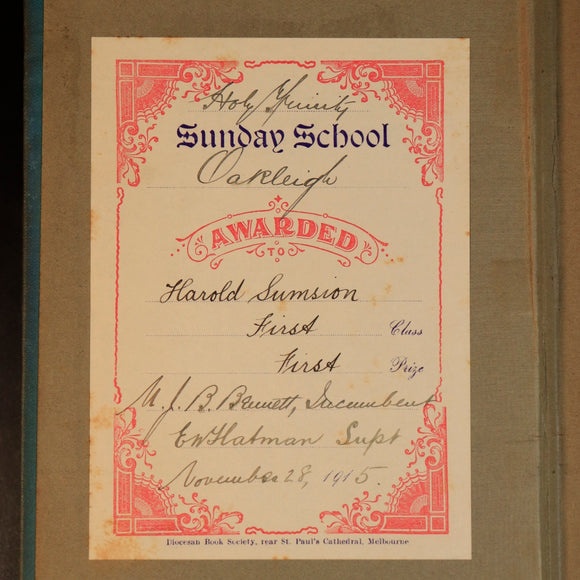 Holy Trinity
Sunday School
Oakleigh
AWARDED
TO
Harold Sumsion
First Class
First Prize
M. J. B. Bennett, Incumbent
Supt
November 28, 1915.
Diocesan Book Society, rear St. Paul's Cathedral, Melbourne